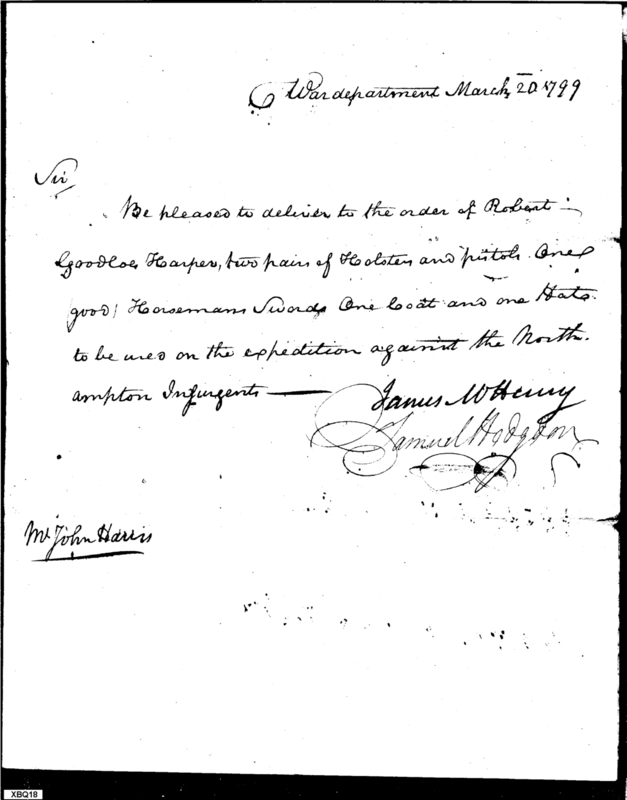 War department March 20 1799
Sir
Be pleased to deliver to the order of Robert
Goodloe Harper, two pairs of Holsters and pistols. One
good Horsemans Sword, One Coat and one Hat
to be used on the expedition against the North-
ampton Insurgents —
James McHenry
Samuel Hodgdon
Mr John Harris
XBQ18